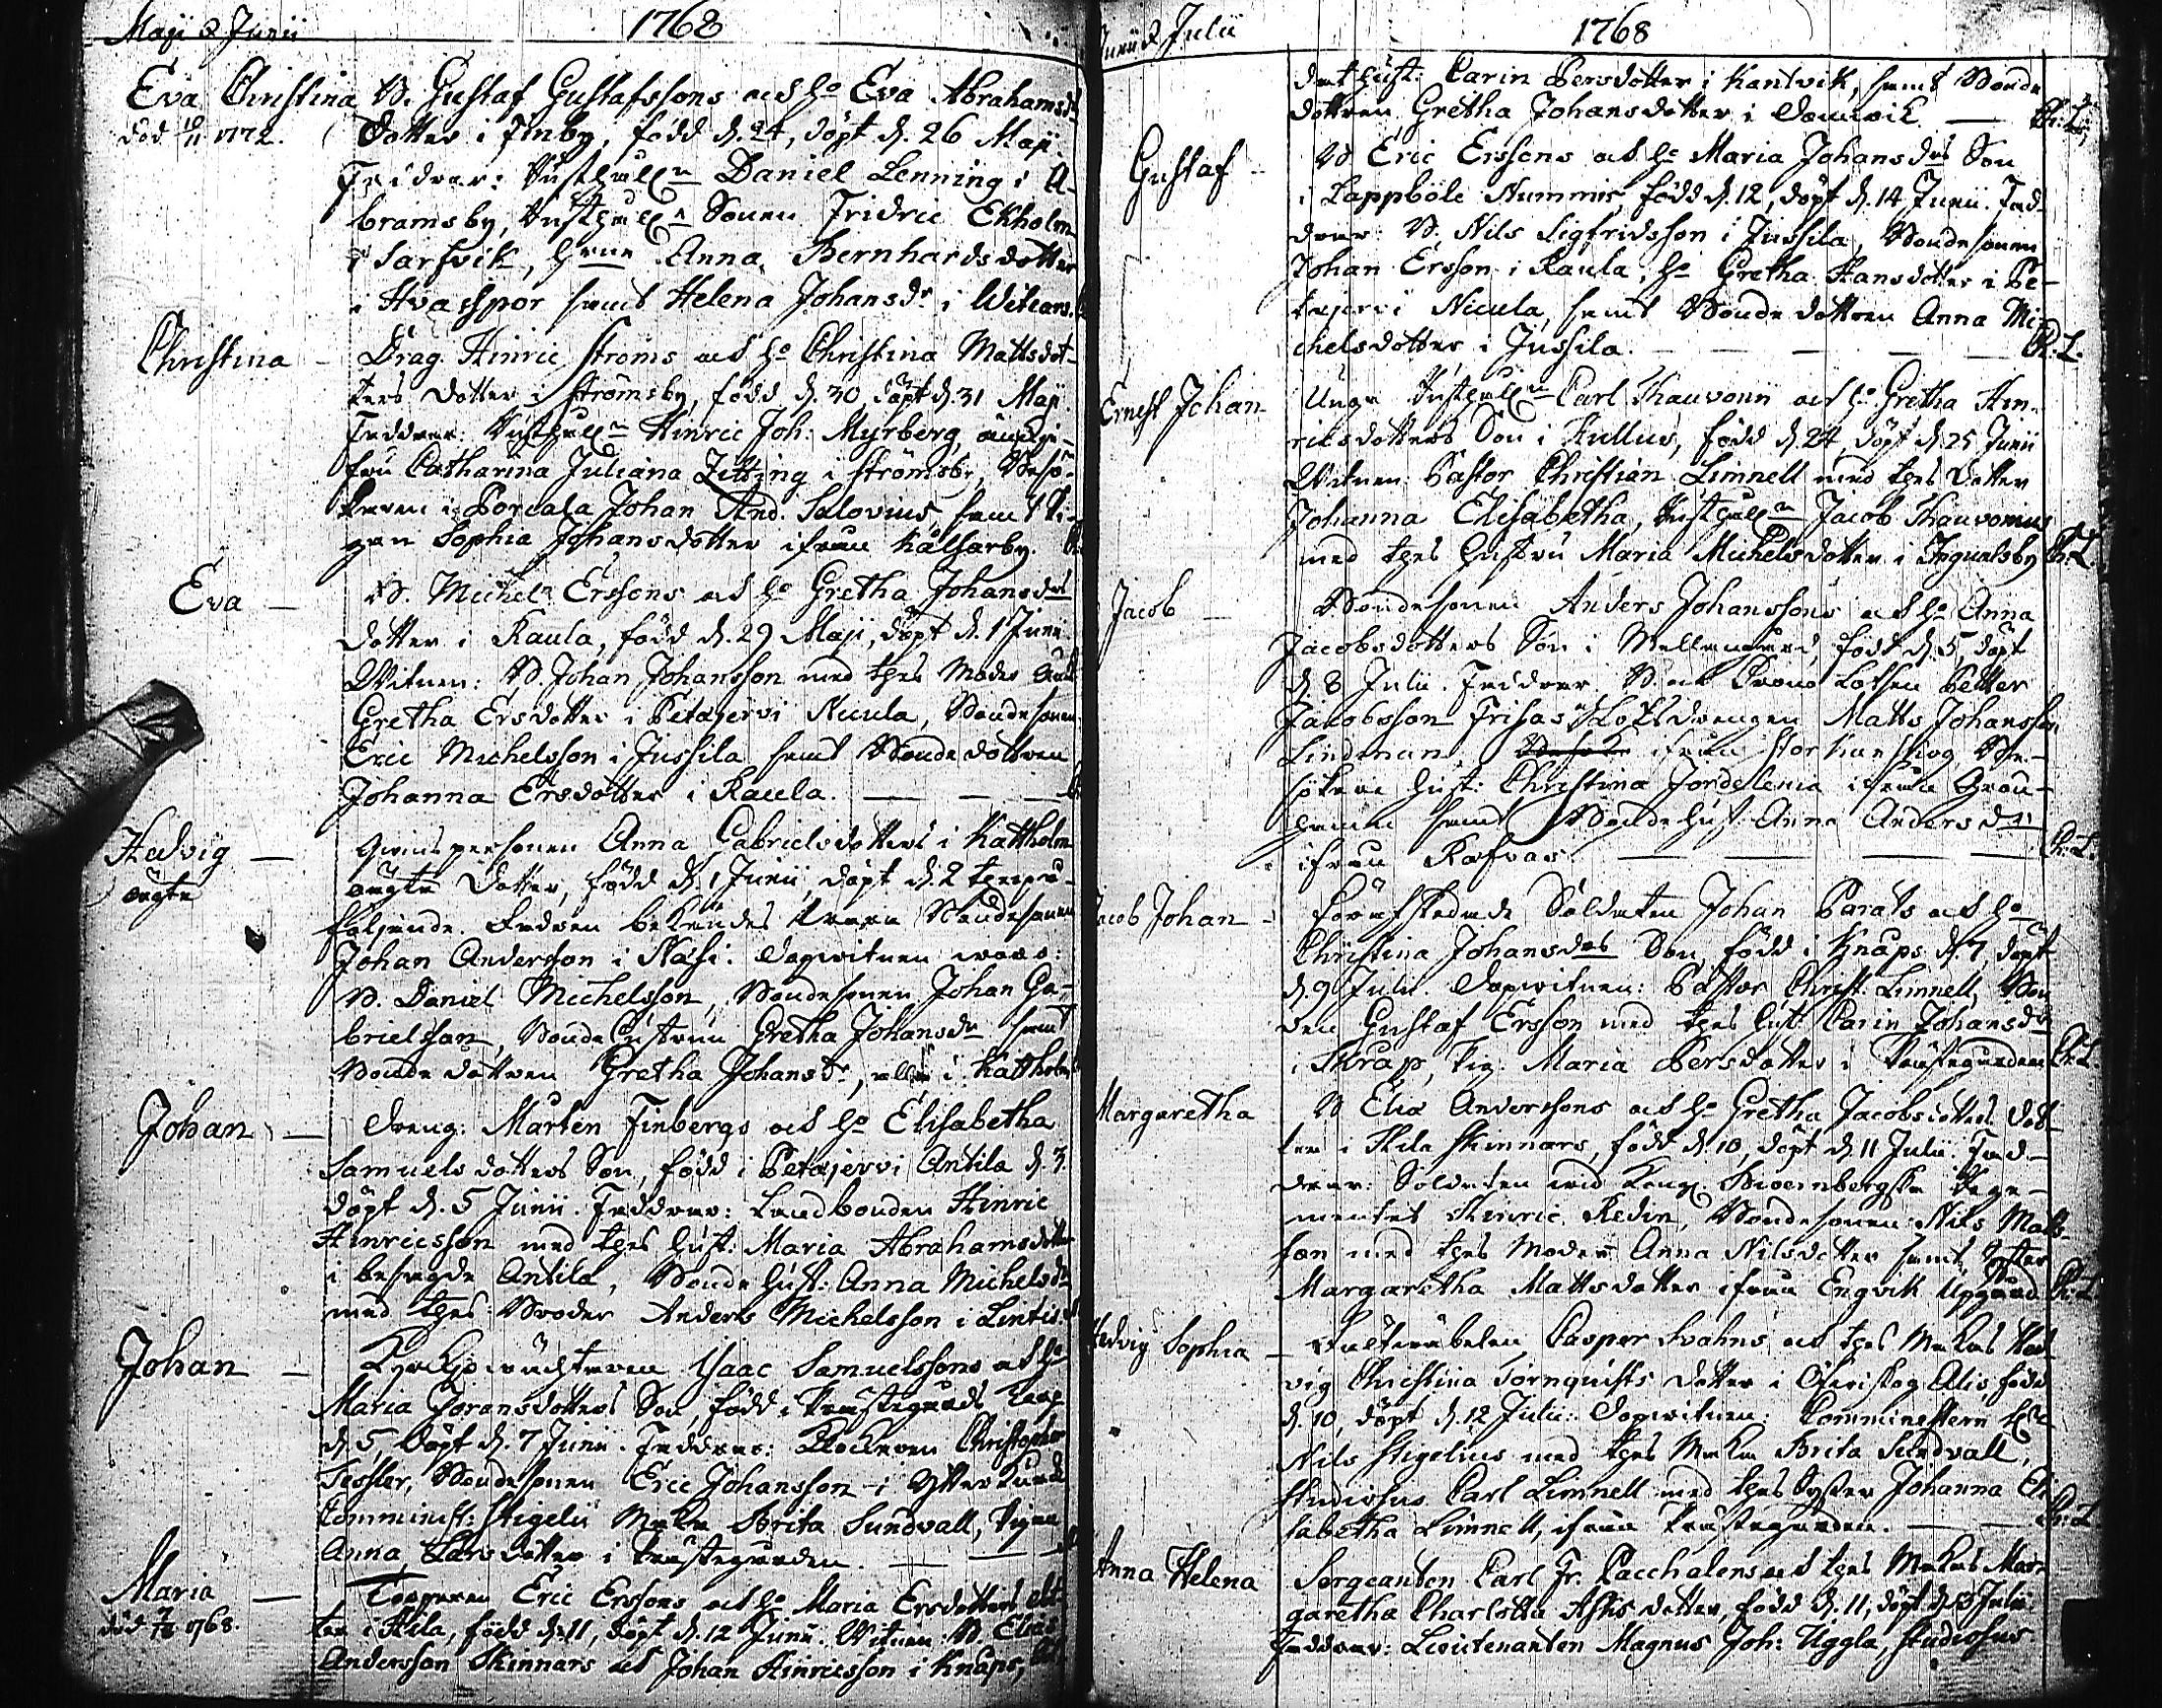 Maji & Junii 1768
Eva Christina B. Gustaf Gustafssons och Ho Eva Abrahamsd:s
död 10/11 1772. Dotter i Finby, född d. 24, döpt d. 26 Maji.
Faddrar: Daniel Lenning i A-
bramsby, Sonen Fridric Ekholm
i Sarfvik, Anna Bernhardsdotter
i Hvasspor samt Helena Johansdr i Witians.
Christina – Drag. Hinric Ströms och Ho Christina Mattsdot-
ters dotter i Strömsby, född d. 30, döpt d. 31 Maji.
Faddrar: Hinric Joh: Myrberg,
fru Catharina Juliana Zitting i Strömsby,
i Porcala Johan And. Salovius, samt Pi-
gan Sophia Johansdotter ifrån Kälfarby.
Eva – B. Michel Erssons och Ho Gretha Johansdrs
dotter i Kaula, född d. 29 Maji, döpt d. 1 Junii
Witnen: B. Johan Johansson med thess Moder
Gretha Ersdotter i Petäjervi Nicula, Bondesonen
Eric Michelsson i Jussila samt Bondedottren
Johanna Ersdotter i Kaula. — — —
Hedvig – Qvinspersonen Anna Gabrielsdotters i Kattholm
oägta oägta Dotter, född d. 1 Junii, döpt d. 2
följande. Fadren bekändes vara Bondesonen
Johan Andersson i Näsi. Dopwitnen woro:
B. Daniel Michelsson, Bondesonen Johan Ga-
brielsson, Bondehustrun Gretha Johansdr samt
Bondedottren Gretha Johansdr, alla i Kattholm
Johan – Dreng: Mårten Finbergs och Ho Elisabetha
Samuelsdotters Son, född i Petäjervi Antila d. 3.
döpt d. 5 Junii. Faddrar: Landbonden Hinric
Hinricsson med thess Hust: Maria Abrahamsdotter
i besagde Antila, Bonde Hust: Anna Michelsdr
med thess Broder Anders Michelsson i Lintis:
Johan – Kyrkjowächtaren Isaac Samuelssons och Ho
Maria Göransdotters Son, född i Prästegårds
d. 5, döpt d. 7 Junii. Faddrar: Klockaren Christopher
Tessler, Bondesonen Eric Johansson i Ytterkurk
Comminist: Stigelii Maka Brita Sundvall, Pigan
Anna Larsdotter i Prästegården. — —
Maria – Eric Erssons och Ho Maria Ersdotters dot-
död 1768. ter i Kila, född d. 11, döpt d. 12 Junii. Witnen: B. Elias
Andersson Skinnars och Johan Hinricsson i Knaps,
Junii & Julii 1768
Hust: Carin Persdotter i Kantvik, samt Bonde
dottren Gretha Johansdotter i Danwik — Ch: L.
Gustaf – B Eric Erssons och Ho Maria Johansdrs Son
i Lappböle Nummis, född d. 12, döpt d. 14 Junii. Fad-
drar: B. Nils Sigfridsson i Jussila, Bondesonen
Johan Ersson i Kaula, Ho Gretha Hansdotter i Pe-
täjervi Nicula, samt Bondedottren Anna Mi-
chelsdotter i Jussila. — — — — Ch. L.
Ernest Johan Unge Carl Thauvonii och Ho Gretha Hin-
ricsdotters Son i Kullus, född d. 24, döpt d. 25 Junii
Witnen: Pastor Christian Limnell med thess dotter
Johanna Elisabetha, Jacob Thauvonius
med thess Hustru Maria Michelsdotter i Ingvalsby Ch: L.
Jacob – Bondesonen Anders Johanssons och Ho Anna
Jacobsdotters Son i Mellangård, född d. 5, döpt
d. 8 Julii. Faddrar: B. och Crono Lotsen Petter
Jacobsson Frisas, Lotsdrengen Matts Johansson
Lindeman ifrån Stor Kanskog, Be-
sökare Hust: Christina Jordelenia ifrån Grön-
samt Bonde Hust. Anna Andersdr
ifrån Rafvas. — — — Ch: L.
Jacob Johan – Förafskedade Soldaten Johan Parats och Ho
Christina Johansdrs Son, född i Knaps d. 7, döpt
d. 9 Julii. Dopwitnen: Pastor Christ. Limnell, Bon-
den Gustaf Ersson med thess Hust: Carin Johansdr
i Skrap, Pig. Maria Persdotter i Prästegården Ch: L.
Margaretha B Elia Anderssons och Ho Gretha Jacobsdotters Dot-
ter i Kila Skinnars, född d. 10, döpt d. 11 Julii. Fad-
drar: Soldaten wid Kongl. Bioernborgska Rege-
mentet Hinric Redin, Bondesonen Nils Matts-
son med thess Moder Anna Nilsdotter samt Syster
Margaretha Mattsdotter ifrån Engvik Uppgård Ch: L.
Hedvig Sophia – Casper Svahns och thess Makas Hed-
vig Christina Törnquists dotter i Överskog Alis, född
d. 10, döpt d. 12 Julii: Dopwitnen: Comministern H:r
Nils Stigelius med thess Maka Brita Sundvall,
Studiosus Carl Limnell med thess Syster Johanna Eli-
sabetha Limnell, ifrån Prästegården. — — Ch: L.
Anna Helena Sergeanten Carl Fr. Pacchalens och thess Makas Mar-
garetha Charlotta Asks dotter, född d. 11, döpt d. 13 Julii.
Faddrar: Lieutenanten Magnus Joh: Uggla, Studiosus